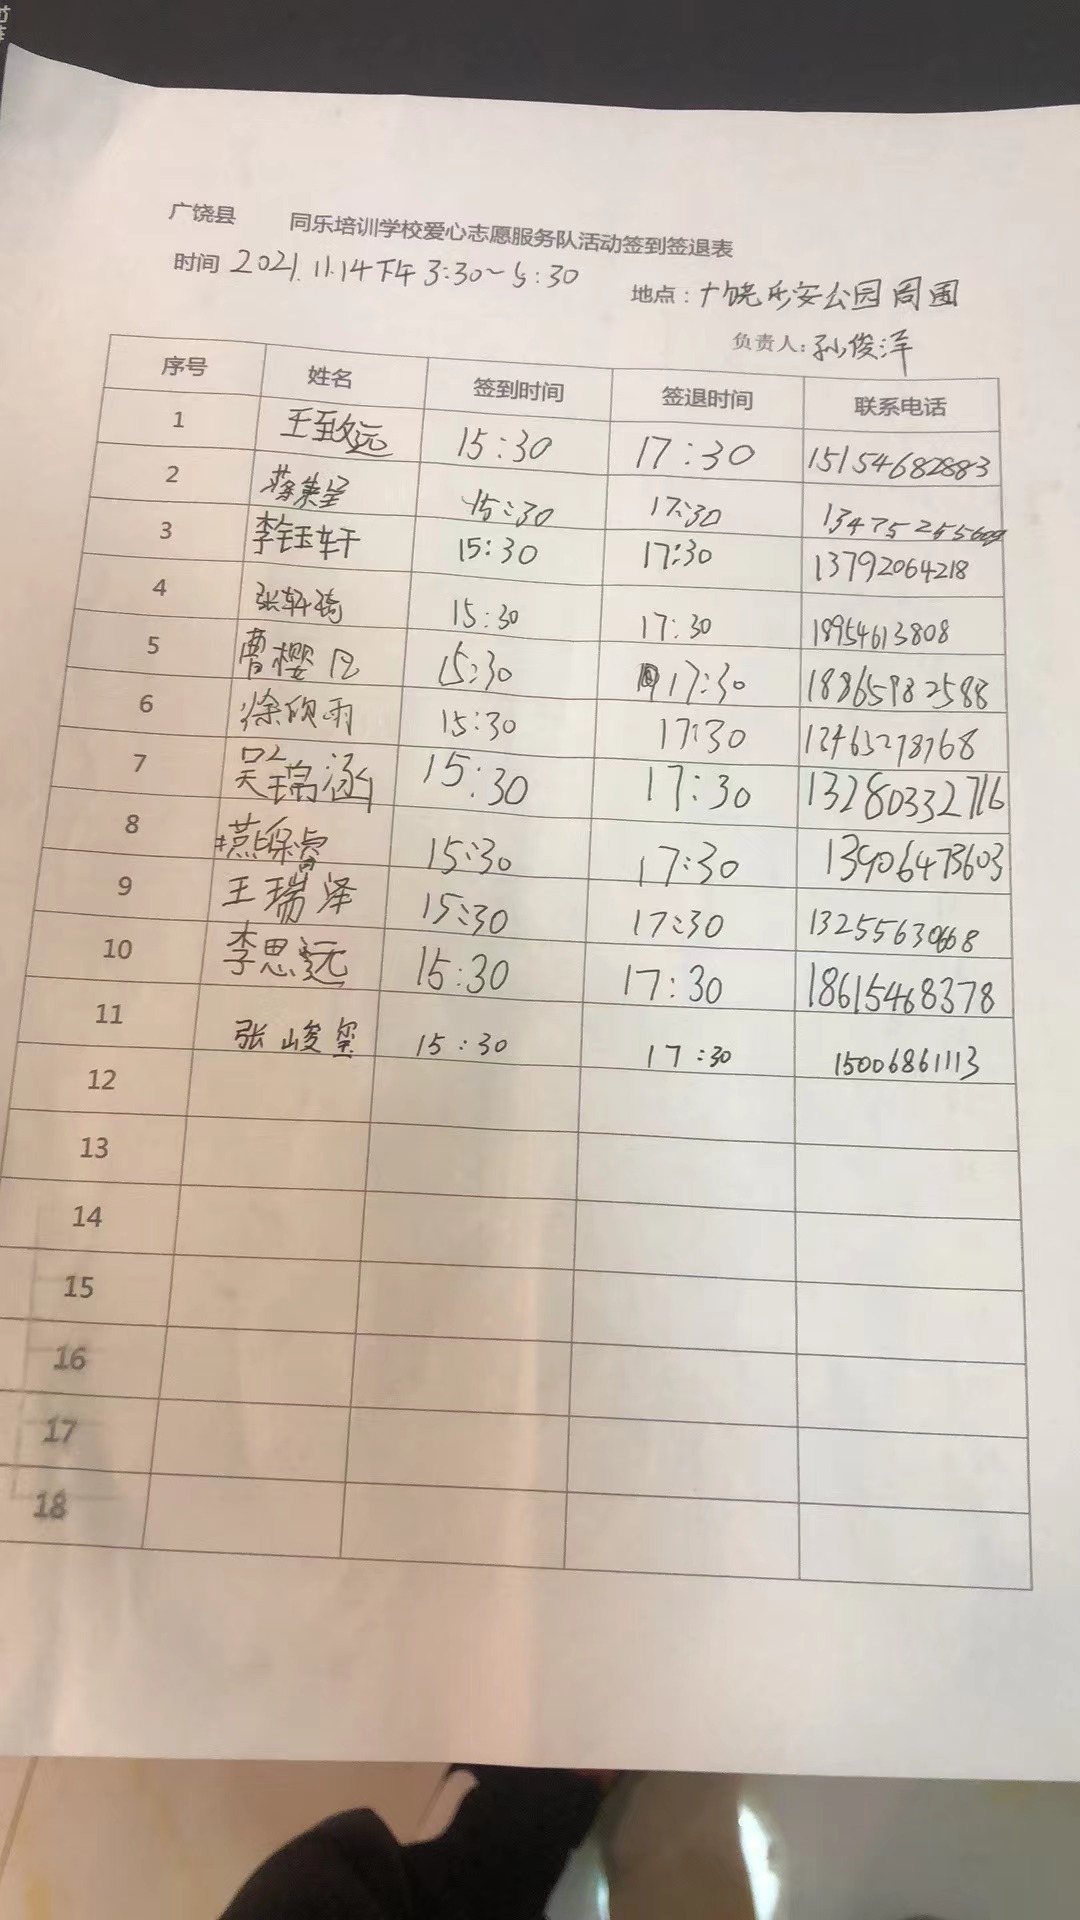 广饶县 同乐培训学校爱心志愿服务队活动签到签退表
时间 2021.11.14下午3:30~5:30
地点：广饶乐安公园周围
负责人：孙俊泽
序号 姓名 签到时间 签退时间 联系电话
1 王致远 15:30 17:30 15154682883
2 15:30 17:30
3 李钰轩 15:30 17:30 13792064218
4 张轩琦 15:30 17:30 18954613808
5 曹樱 15:30 17:30 18865982588
6 徐欣雨 15:30 17:30
7 吴瑞涵 15:30 17:30 13280332716
8 燕保睿 15:30 17:30 13906473603
9 王瑞泽 15:30 17:30 13255630668
10 李思远 15:30 17:30 18615468378
11 张峻玺 15:30 17:30 15006861113
12
13
14
15
16
17
18